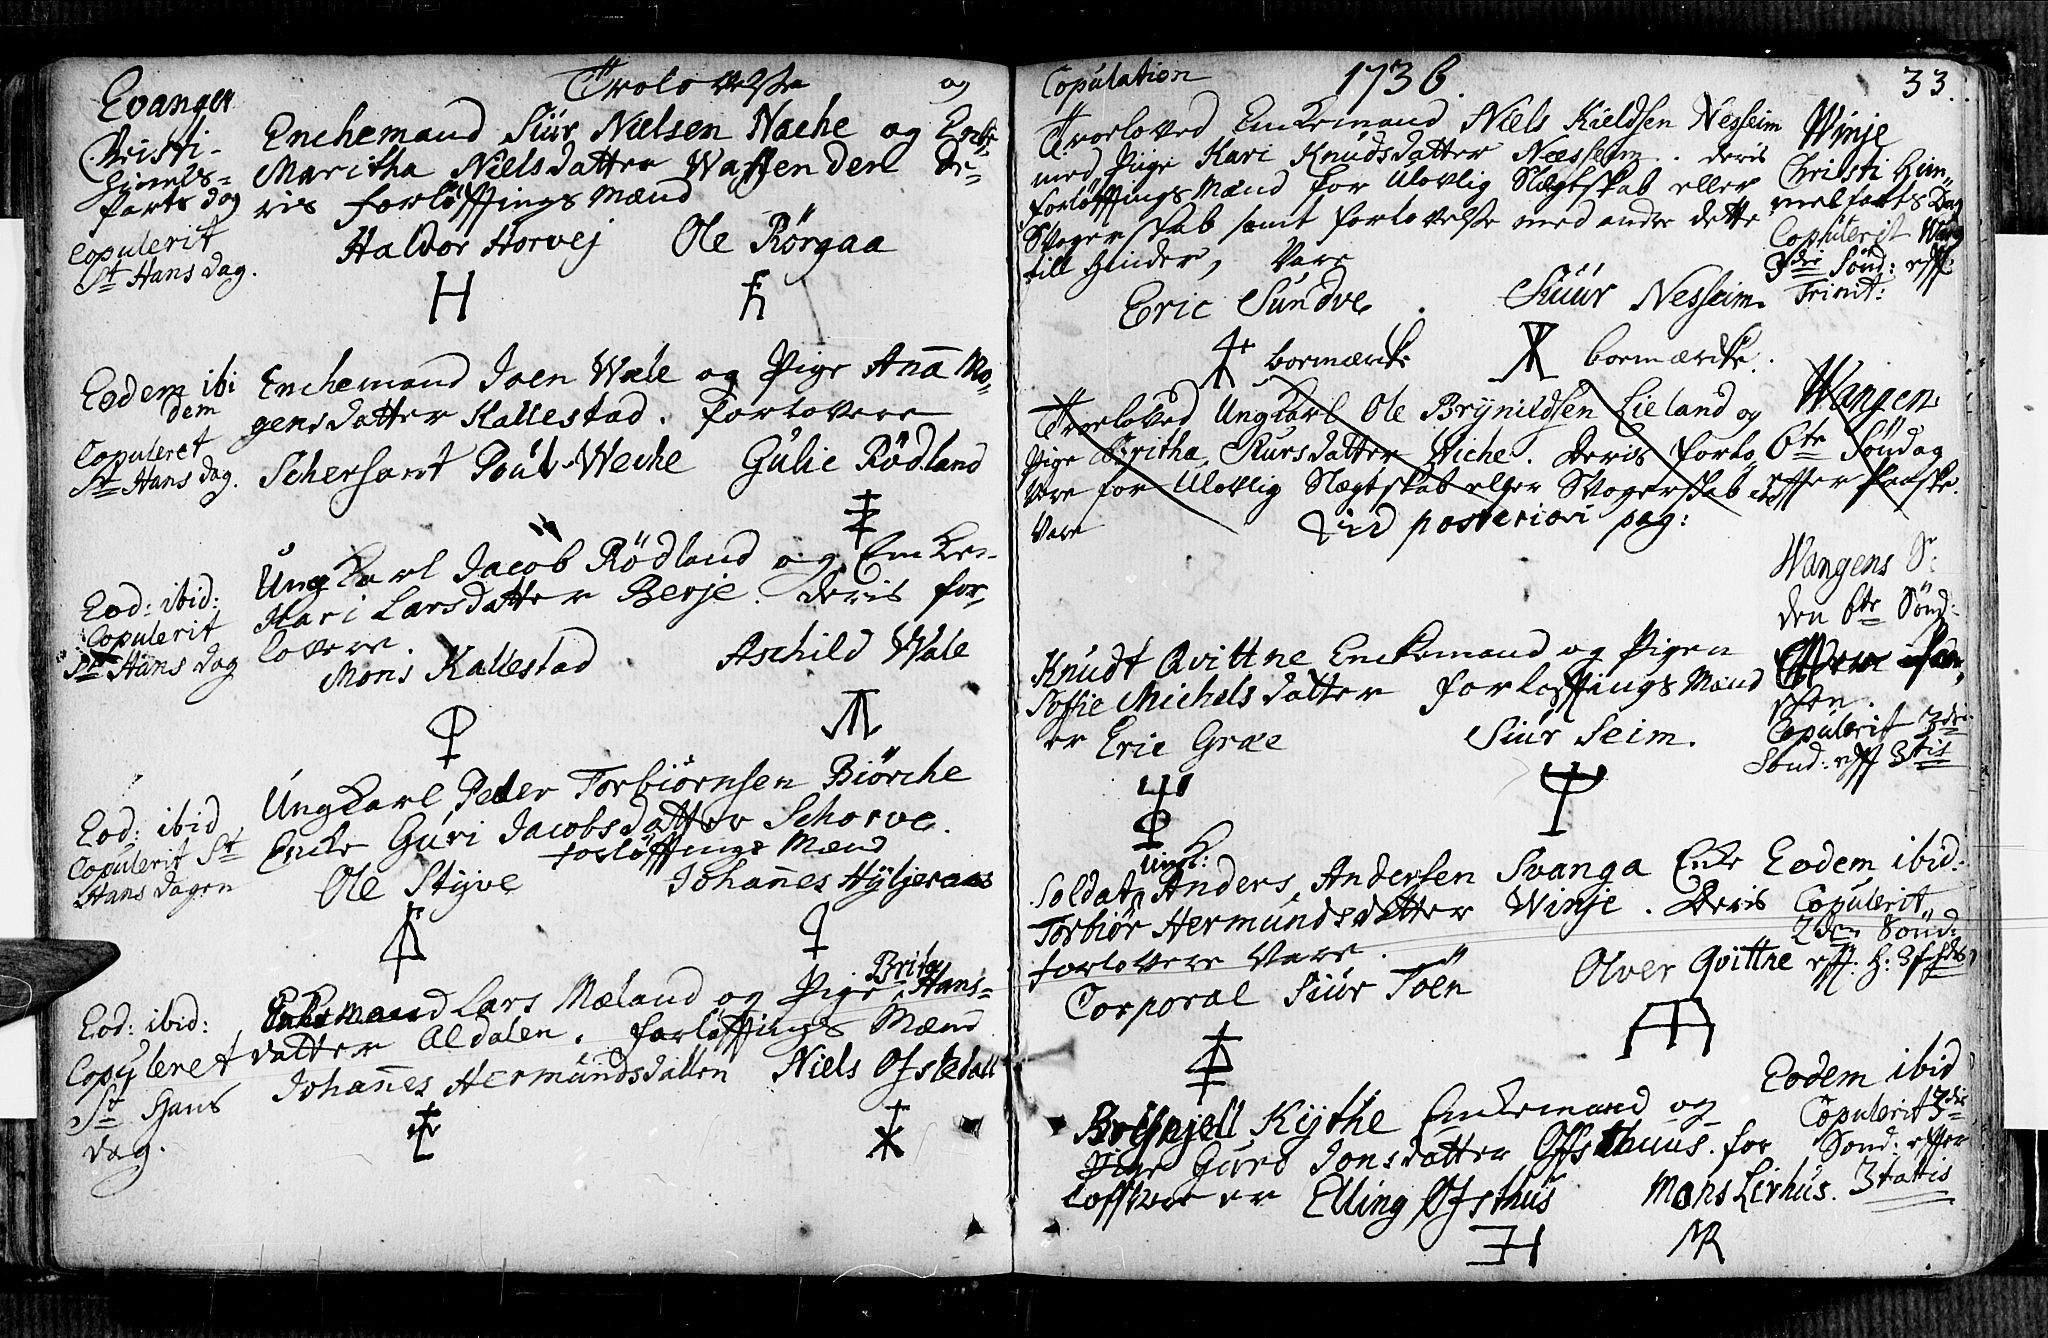 Trolovelse og
Evanger
Christi
Himels-
farts dag
Copulerit
St Hans dag.
Enchemand Siur Nielsen Nache og Enke
Maritha Nielsdatter Wassenden De-
ris forløfftnings Mænd
Haldor Horvej Ole Rørgaa
H
Eodem ibi
dem
Copuleret
St Hans dag.
Enchemand Joen Wæle og Pige Ana Mo-
gensdatter Kallestad. forlovere
Schersant Poul Weche Gulic Rødland
Eod: ibid:
Copulerit
St Hans dag
Ung Karl Jacob Rødland og Encke
Kari Larsdatter Berje. deris for-
lovere.
Mons Kallestad Aschild Wæle
Eod: ibid
Copulerit St
Hans dagen
Ungkarl Peder Torbiørnsen Biørche
Encke Guri Jacobsdatter Schorve.
forløfftnings Mænd
Ole Styve Johannes Hyljeraas
Eod: ibid:
Copuleret
St Hans
dag.
Enkemand Lars Mæland og Pige Brita Hans-
datter Aldalen. forløfftnings Mænd
Johannes Hermundsdallen Niels Ofstedall
Copulation 1736. 33.
Troeloved Enkemand Niels Kieldsen Nesseim
med Pige Kari Knudsdatter Næsseim. deris
forløfftnings Mænd for Ulovlig Slægtskab eller
Svogerskab samt forlovelse med andre dette
till Hinder, Vare
Eric Sundve Siuur Nesseim
bormærke bormærcke.
Winje
Christi Him-
melfarts Dag
Copulerit
3die Sønd: eff:
Trinit:
Troeloved Ungkarl Ole Brynildsen Lieland og
Pige Britha Siursdatter Wiche. Deris forlo
Vere for Ulovlig Slægtskab eller Svogerskab
Vare Vid posteriori pag:
Wangen
6te Søndag
effter Paaske.
Wangens S:
den 6te Sønd:
Copulerit 3die
Sønd: eff 3tis
Knudt Qvittne Enckemand og Pigen
Soffie Michelsdatter forløfftnings Mænd
er Eric Græe Siur Seim.
Soldat Ungk: Anders Andersen Svanga Enke
Torbiør Hermundsdatter Winje. Deris
forlovere Vare.
Corporal Siur Töen Olver Qvittne
Eodem ibid:
Copulerit
2den Sønd:
Brynjell Kythe Enckemand og
Pige Guro Jonsdatter Offsthuus. for
loffvere er Elling Ofsthus Mons Lirhus.
Eodem ibid
Copulerit 3die
Sond: effter
3tatis
EH MR